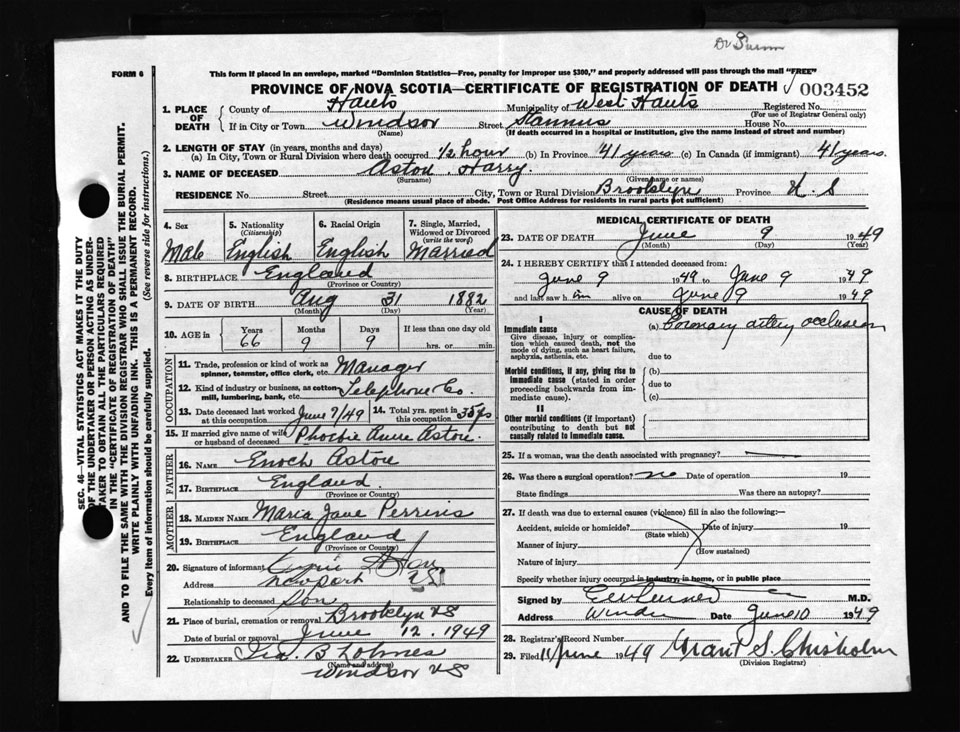 Dr
FORM 6
This form if placed in an envelope, marked "Dominion Statistics—Free, penalty for improper use $300," and properly addressed will pass through the mail "FREE"
PROVINCE OF NOVA SCOTIA—CERTIFICATE OF REGISTRATION OF DEATH 003452
1. PLACE OF DEATH
County of Hants Municipality of West Hants Registered No.
(For use of Registrar General only)
If in City or Town Windsor Street Stannus House No.
(Name) (If death occurred in a hospital or institution, give the name instead of street and number)
2. LENGTH OF STAY (in years, months and days)
(a) In City, Town or Rural Division where death occurred 1/2 hour (b) In Province 41 years (c) In Canada (if immigrant) 41 years.
3. NAME OF DECEASED Aston Harry.
(Surname) (Given name or names)
RESIDENCE No. Street City, Town or Rural Division Brooklyn Province N. S
(Residence means usual place of abode. Post Office Address for residents in rural parts not sufficient)
4. Sex Male
5. Nationality (Citizenship) English
6. Racial Origin English
7. Single, Married, Widowed or Divorced (write the word) Married
8. BIRTHPLACE England
(Province or Country)
9. DATE OF BIRTH Aug 31 1882
(Month) (Day) (Year)
10. AGE in Years Months Days If less than one day old
66 9 9 hrs. or min.
OCCUPATION
11. Trade, profession or kind of work as spinner, teamster, office clerk, etc. Manager
12. Kind of industry or business, as cotton mill, lumbering, bank, etc. Telephone Co.
13. Date deceased last worked at this occupation June 7/49
14. Total yrs. spent in this occupation 35 yrs
15. If married give name of wife or husband of deceased Phoebie Anne Aston.
FATHER
16. NAME Enoch Aston
17. BIRTHPLACE England
(Province or Country)
MOTHER
18. MAIDEN NAME Maria Jane Perrins
19. BIRTHPLACE England
(Province or Country)
20. Signature of informant Aston
Address Newport NS
Relationship to deceased Son
21. Place of burial, cremation or removal Brooklyn NS
Date of burial or removal June 12. 1949
22. UNDERTAKER B Holmes
(Name and address)
Windsor NS
MEDICAL CERTIFICATE OF DEATH
23. DATE OF DEATH June 9 1949
(Month) (Day) (Year)
24. I HEREBY CERTIFY that I attended deceased from:
June 9 1949 to June 9 1949
and last saw him alive on June 9 1949
CAUSE OF DEATH
I
Immediate cause (a) Coronary artery occlusion
Give disease, injury or complication which caused death, not the mode of dying, such as heart failure, asphyxia, asthenia, etc.
due to
Morbid conditions, if any, giving rise to immediate cause (stated in order proceeding backwards from immediate cause).
(b)
due to
(c)
II
Other morbid conditions (if important) contributing to death but not causally related to immediate cause.
25. If a woman, was the death associated with pregnancy?
26. Was there a surgical operation? no Date of operation 19
State findings Was there an autopsy?
27. If death was due to external causes (violence) fill in also the following:—
Accident, suicide or homicide? Date of injury 19
(State which)
Manner of injury
(How sustained)
Nature of injury
Specify whether injury occurred in industry, in home, or in public place
Signed by M.D.
Address Windsor Date June 10 1949
28. Registrar's Record Number
29. Filed 11/June 1949 Grant S. Chisholm
(Division Registrar)
SEC. 46—VITAL STATISTICS ACT MAKES IT THE DUTY
OF THE UNDERTAKER OR PERSON ACTING AS UNDER-
TAKER TO OBTAIN ALL THE PARTICULARS REQUIRED
IN THE "CERTIFICATE OF REGISTRATION OF DEATH"
AND TO FILE THE SAME WITH THE DIVISION REGISTRAR WHO SHALL ISSUE THE BURIAL PERMIT.
WRITE PLAINLY WITH UNFADING INK. THIS IS A PERMANENT RECORD.
Every item of information should be carefully supplied. (See reverse side for instructions.)